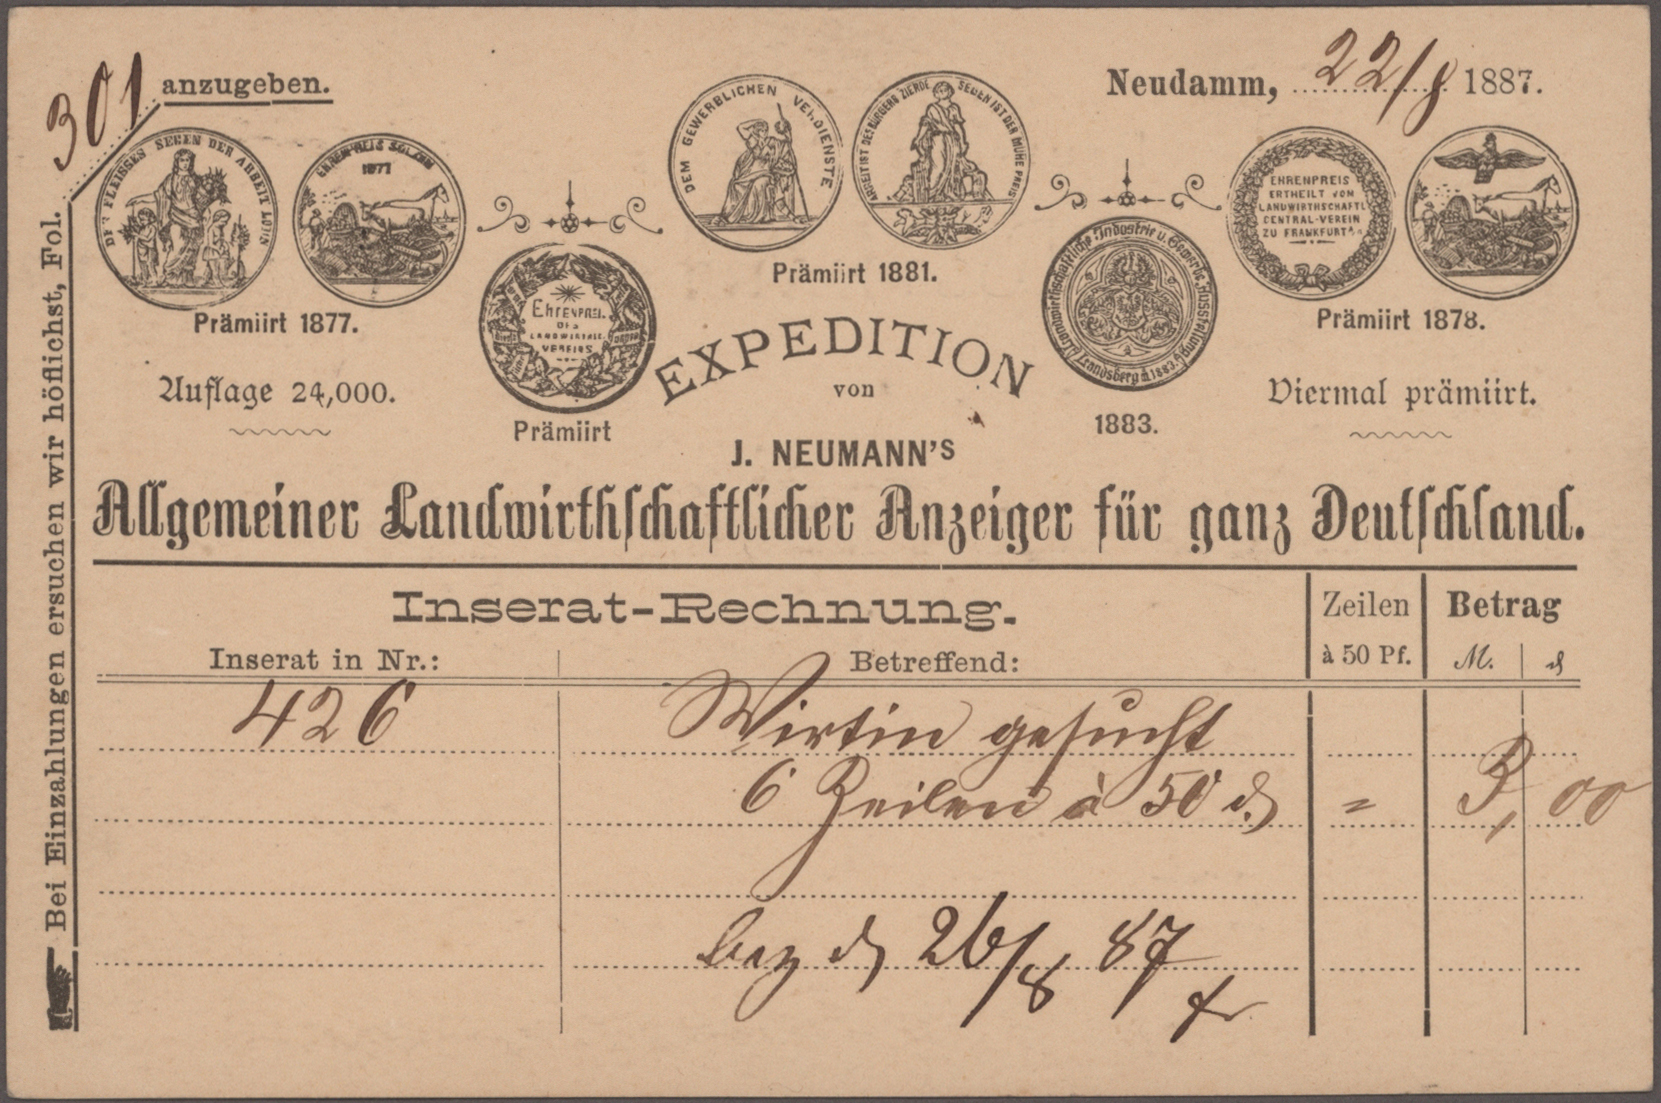 Bei Einzahlungen ersuchen wir höflichst, Fol. 301 anzugeben.
Neudamm, 22/8 1887.
SEGEN DER ARBEIT LOHN
EHRENPREIS
1877
Prämiirt 1877.
Auflage 24,000.
EHRENPREIS
DES
LANDWIRTHSC.
VEREINS
Prämiirt
DEM GEWERBLICHEN VERDIENSTE
ARBEIT IST DES BÜRGERS ZIERDE SEGEN IST DER MÜHE PREIS
Prämiirt 1881.
Landwirthschaftliche Industrie u. Gewerbe Ausstellung Landsberg 1883.
1883.
EHRENPREIS
ERTHEILT VOM
LANDWIRTHSCHAFTL
CENTRAL-VEREIN
ZU FRANKFURT
Prämiirt 1878.
Viermal prämiirt.
EXPEDITION
von
J. NEUMANN'S
Allgemeiner Landwirthschaftlicher Anzeiger für ganz Deutschland.
Inserat-Rechnung.
Zeilen à 50 Pf.
Betrag
M. ₰
Inserat in Nr.: Betreffend:
426 Wirtin gesucht
6 Zeilen à 50 ₰ = 3,00
bez d 26/8 87